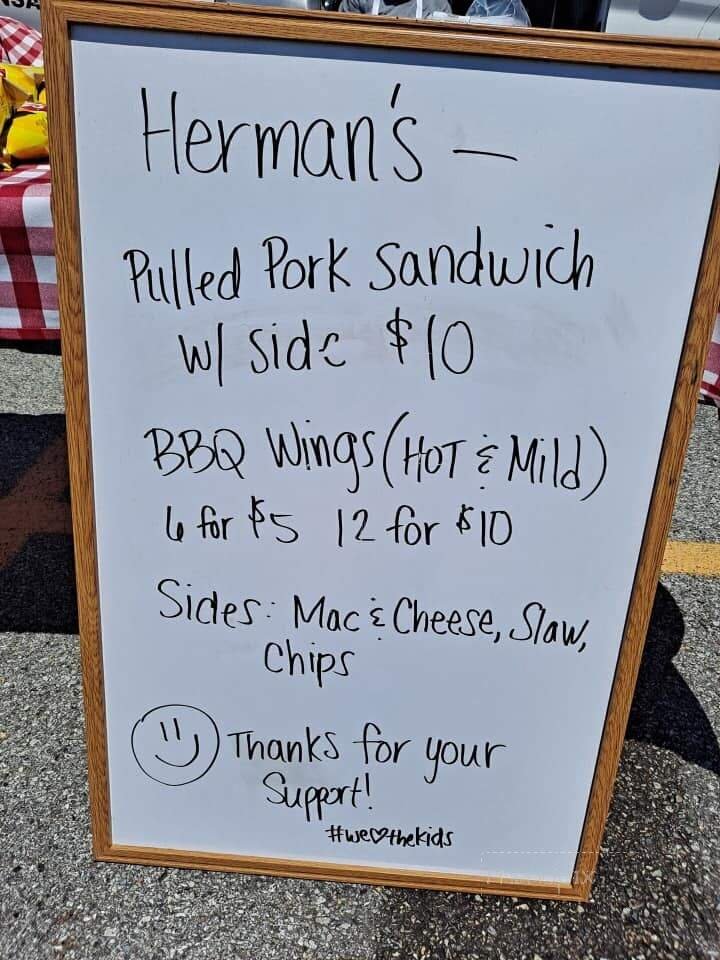 Herman's —
Pulled Pork Sandwich
w/ side $10
BBQ Wings (HOT & Mild)
6 for $5 12 for $10
Sides: Mac & Cheese, Slaw,
Chips
Thanks for your
Support!
#we♡thekids